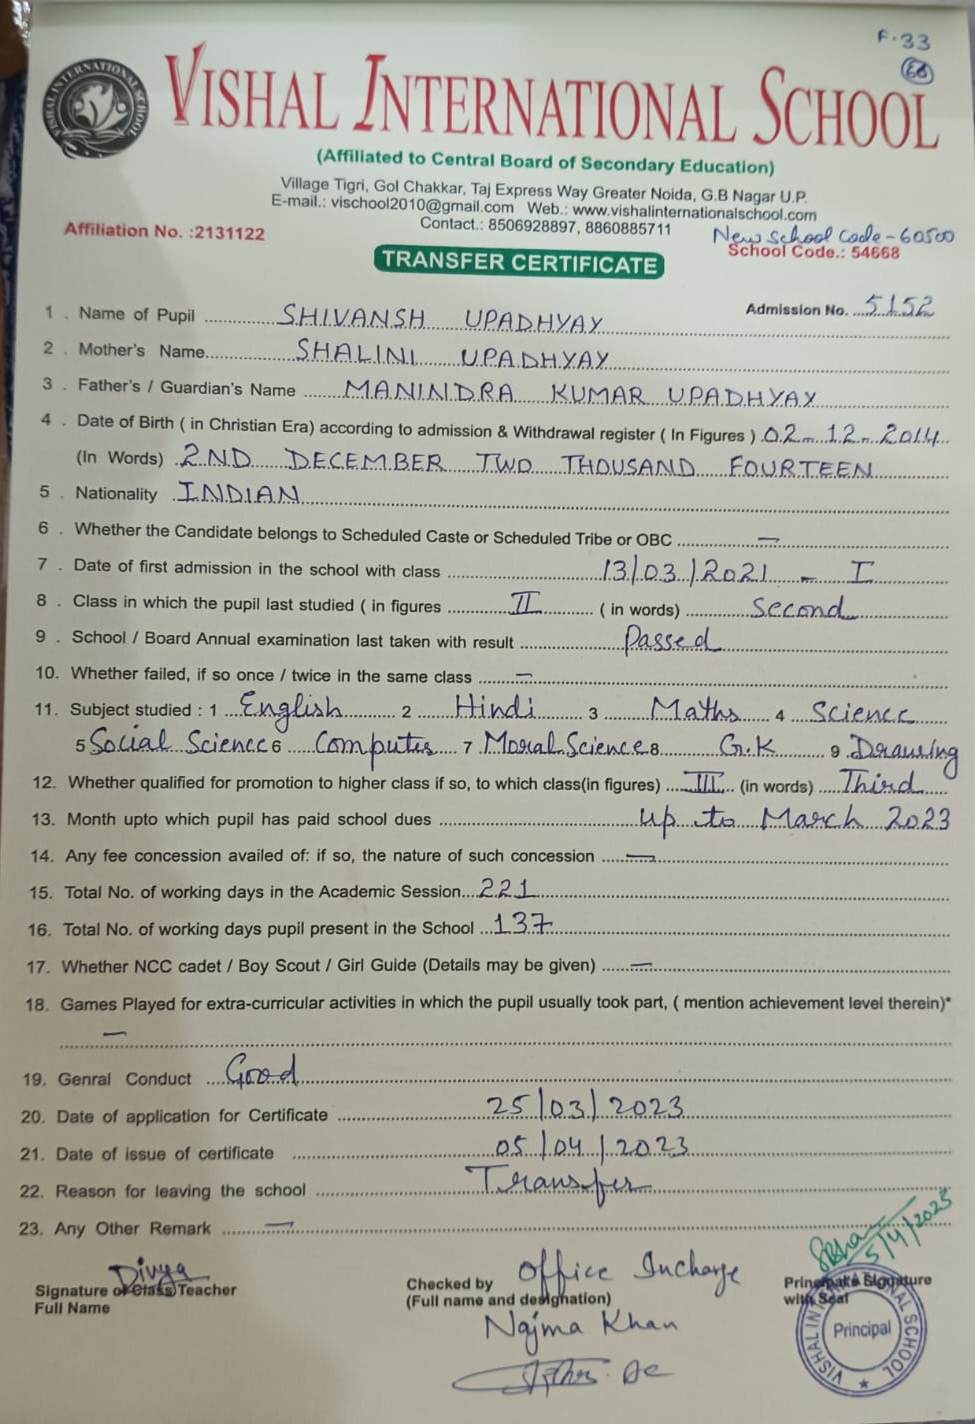 F-33
66
VISHAL INTERNATIONAL SCHOOL
VISHAL INTERNATIONAL SCHOOL
(Affiliated to Central Board of Secondary Education)
Village Tigri, Gol Chakkar, Taj Express Way Greater Noida, G.B Nagar U.P.
E-mail.: vischool2010@gmail.com Web.: www.vishalinternationalschool.com
Contact.: 8506928897, 8860885711
Affiliation No. :2131122
New School Code - 60500
School Code.: 54668
TRANSFER CERTIFICATE
Admission No. 5152
1 . Name of Pupil SHIVANSH UPADHYAY
2 . Mother's Name SHALINI UPADHYAY
3 . Father's / Guardian's Name MANINDRA KUMAR UPADHYAY
4 . Date of Birth ( in Christian Era) according to admission & Withdrawal register ( In Figures ) 02 - 12 - 2014
(In Words) 2ND DECEMBER TWO THOUSAND FOURTEEN
5 . Nationality INDIAN
6 . Whether the Candidate belongs to Scheduled Caste or Scheduled Tribe or OBC —
7 . Date of first admission in the school with class 13/03/2021 - I
8 . Class in which the pupil last studied ( in figures II ( in words) Second
9 . School / Board Annual examination last taken with result Passed
10. Whether failed, if so once / twice in the same class —
11. Subject studied : 1 English 2 Hindi 3 Maths 4 Science
5 Social Science 6 Computer 7 Moral Science 8 G.K 9 Drawing
12. Whether qualified for promotion to higher class if so, to which class(in figures) III (in words) Third
13. Month upto which pupil has paid school dues up to March 2023
14. Any fee concession availed of: if so, the nature of such concession —
15. Total No. of working days in the Academic Session 221
16. Total No. of working days pupil present in the School 137
17. Whether NCC cadet / Boy Scout / Girl Guide (Details may be given) —
18. Games Played for extra-curricular activities in which the pupil usually took part, ( mention achievement level therein)*
—
19. Genral Conduct Good
20. Date of application for Certificate 25/03/2023
21. Date of issue of certificate 05/04/2023
22. Reason for leaving the school Transfer
23. Any Other Remark —
5/4/2023
Divya
Signature of Class Teacher
Full Name
Checked by Office Incharge
(Full name and designation)
Najma Khan
Principal's Signature
with Seal
VISHAL INTERNATIONAL SCHOOL
Principal